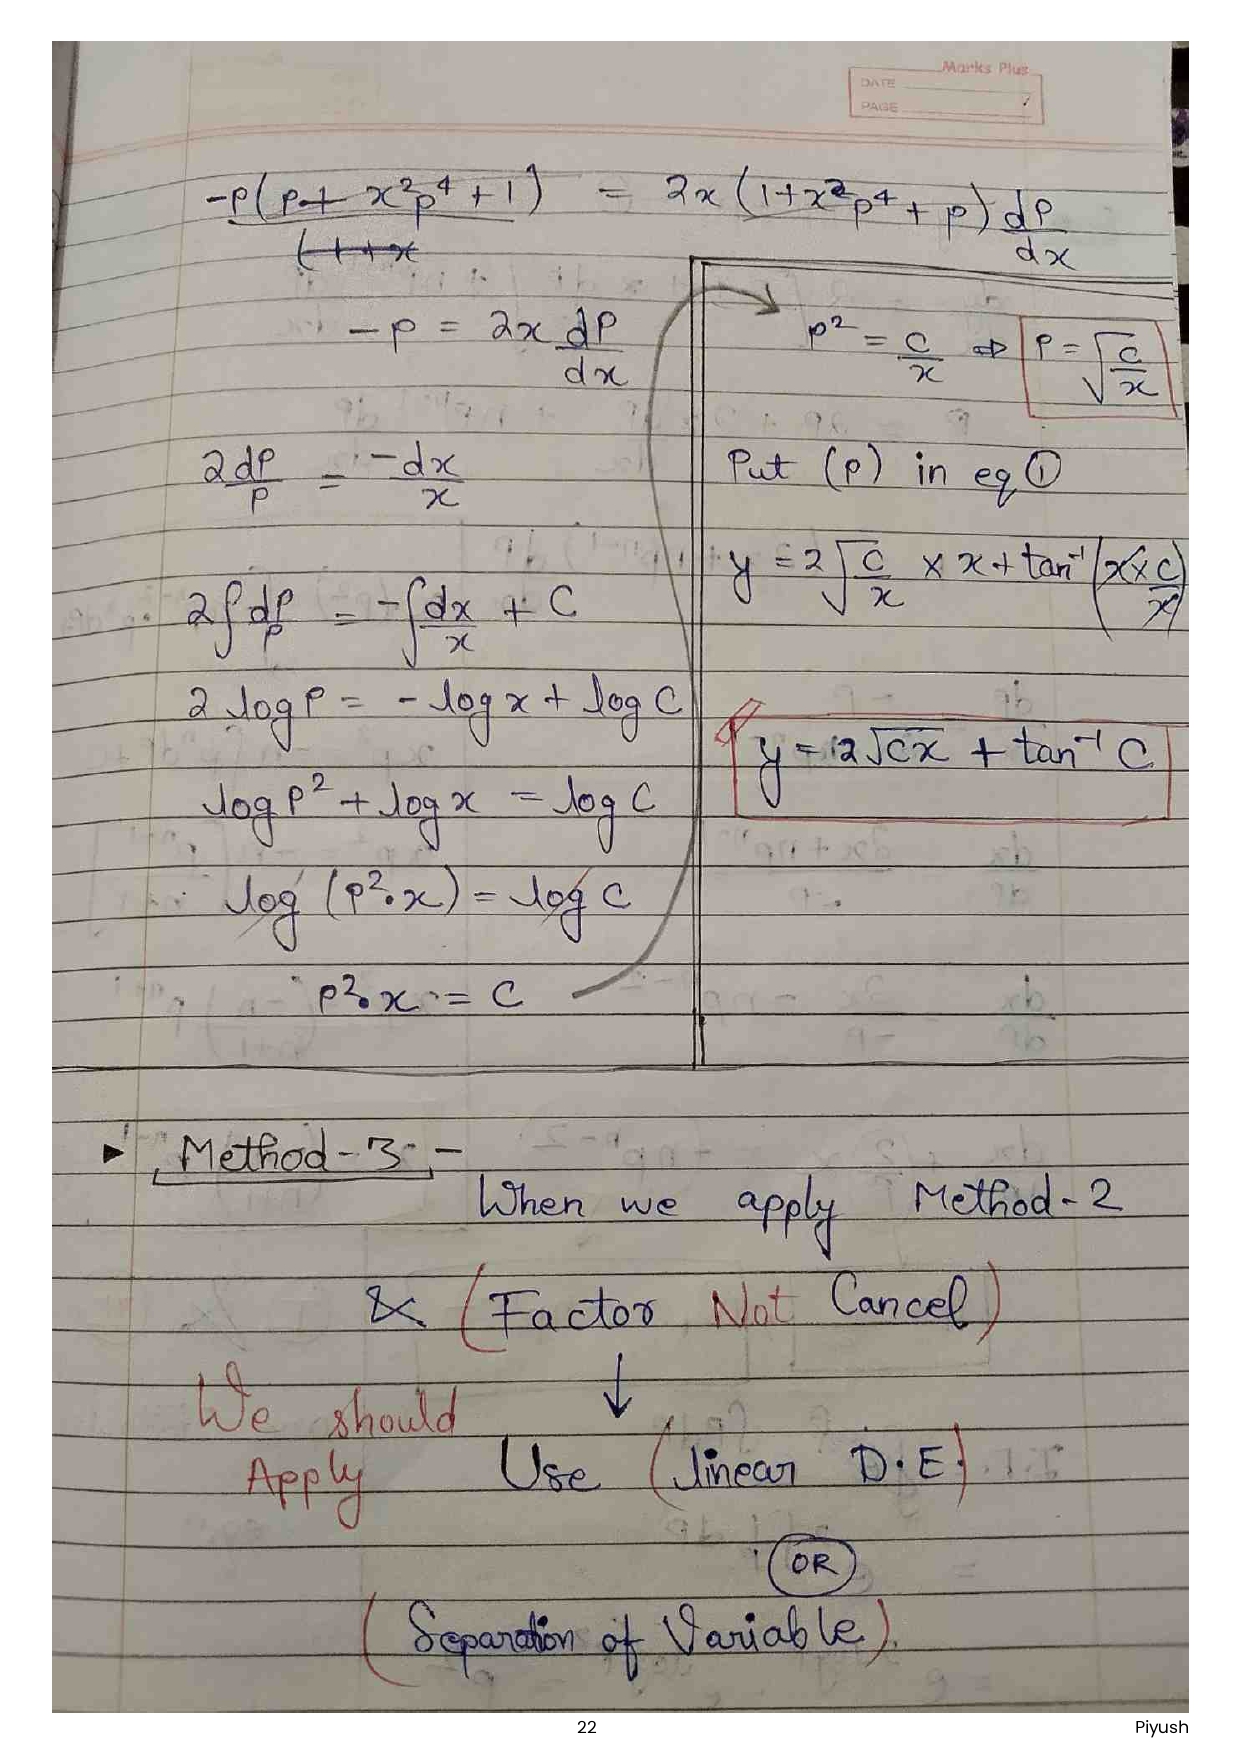 Marks Plus
DATE
PAGE
-p(p + x²p⁴ + 1) = 2x (1 + x²p⁴ + p) dp/dx
(1 + x
-p = 2x dp/dx
2dp/p = -dx/x
2∫dp/p = -∫dx/x + C
2 log p = - log x + log C
log p² + log x = log C
log (p².x) = log C
p².x = C
p² = C/x ⇒ p = √(C/x)
Put (p) in eq ①
y = 2√(C/x) × x + tan⁻¹(x × C/x)
y = 2√cx + tan⁻¹ C
▸ Method-3 :-
When we apply Method-2
& (Factor Not Cancel)
↓
We should
Apply Use (linear D.E.)
OR
(Separation of Variable).
22 Piyush